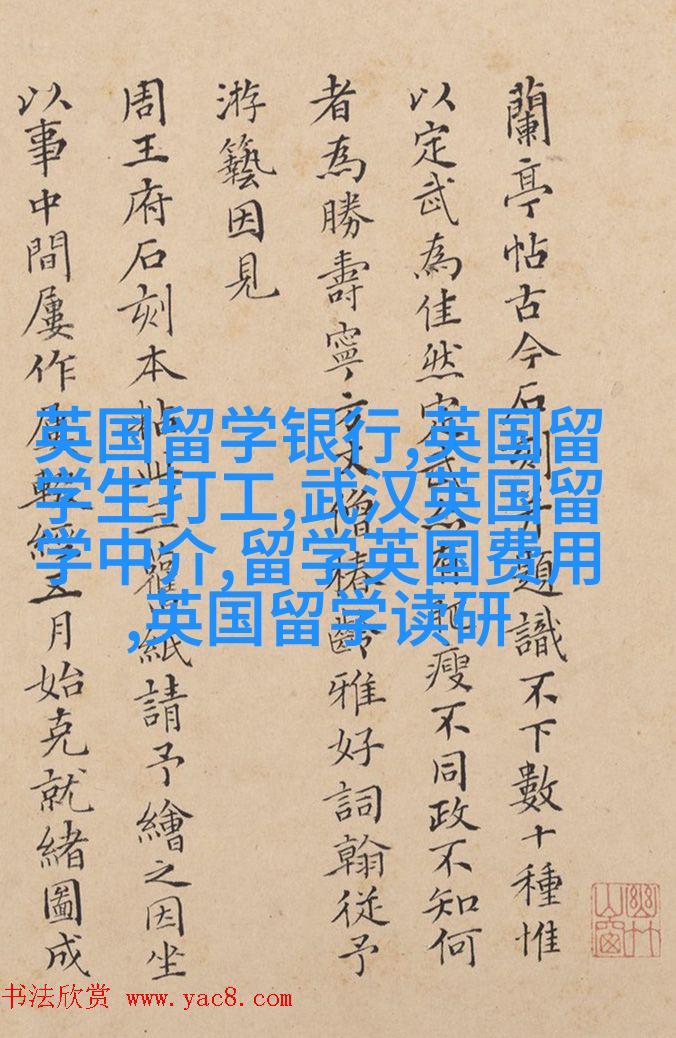 蘭亭帖古今石刻題識不下數十種惟
以定武為佳然定武亦有肥瘦不同政不知何
者為勝壽寧方丈僧椿齡雅好詞翰從予
游藝因見
周王府石刻本粘此三舊紙請予繪之因坐
以事中間屢作屢輟經五月始克就緒圖成
幽竹
山窗
英国留学银行,英国留
学生打工,武汉英国留
学中介,留学英国费用
,英国留学读研
书法欣赏 www.yac8.com